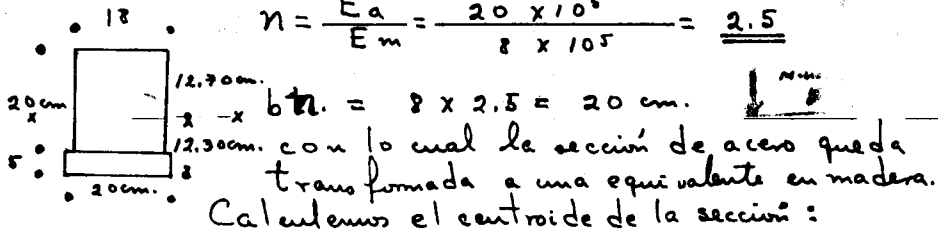 18
n = Ea / Em = 20 x 10⁵ / 8 x 10⁵ = 2.5
12.70 cm.
20 cm
x
bn. = 8 x 2.5 = 20 cm.
-x
12.30 cm. con lo cual la sección de acero queda
5
20 cm.
transformada a una equivalente en madera.
Calculemos el centroide de la sección: